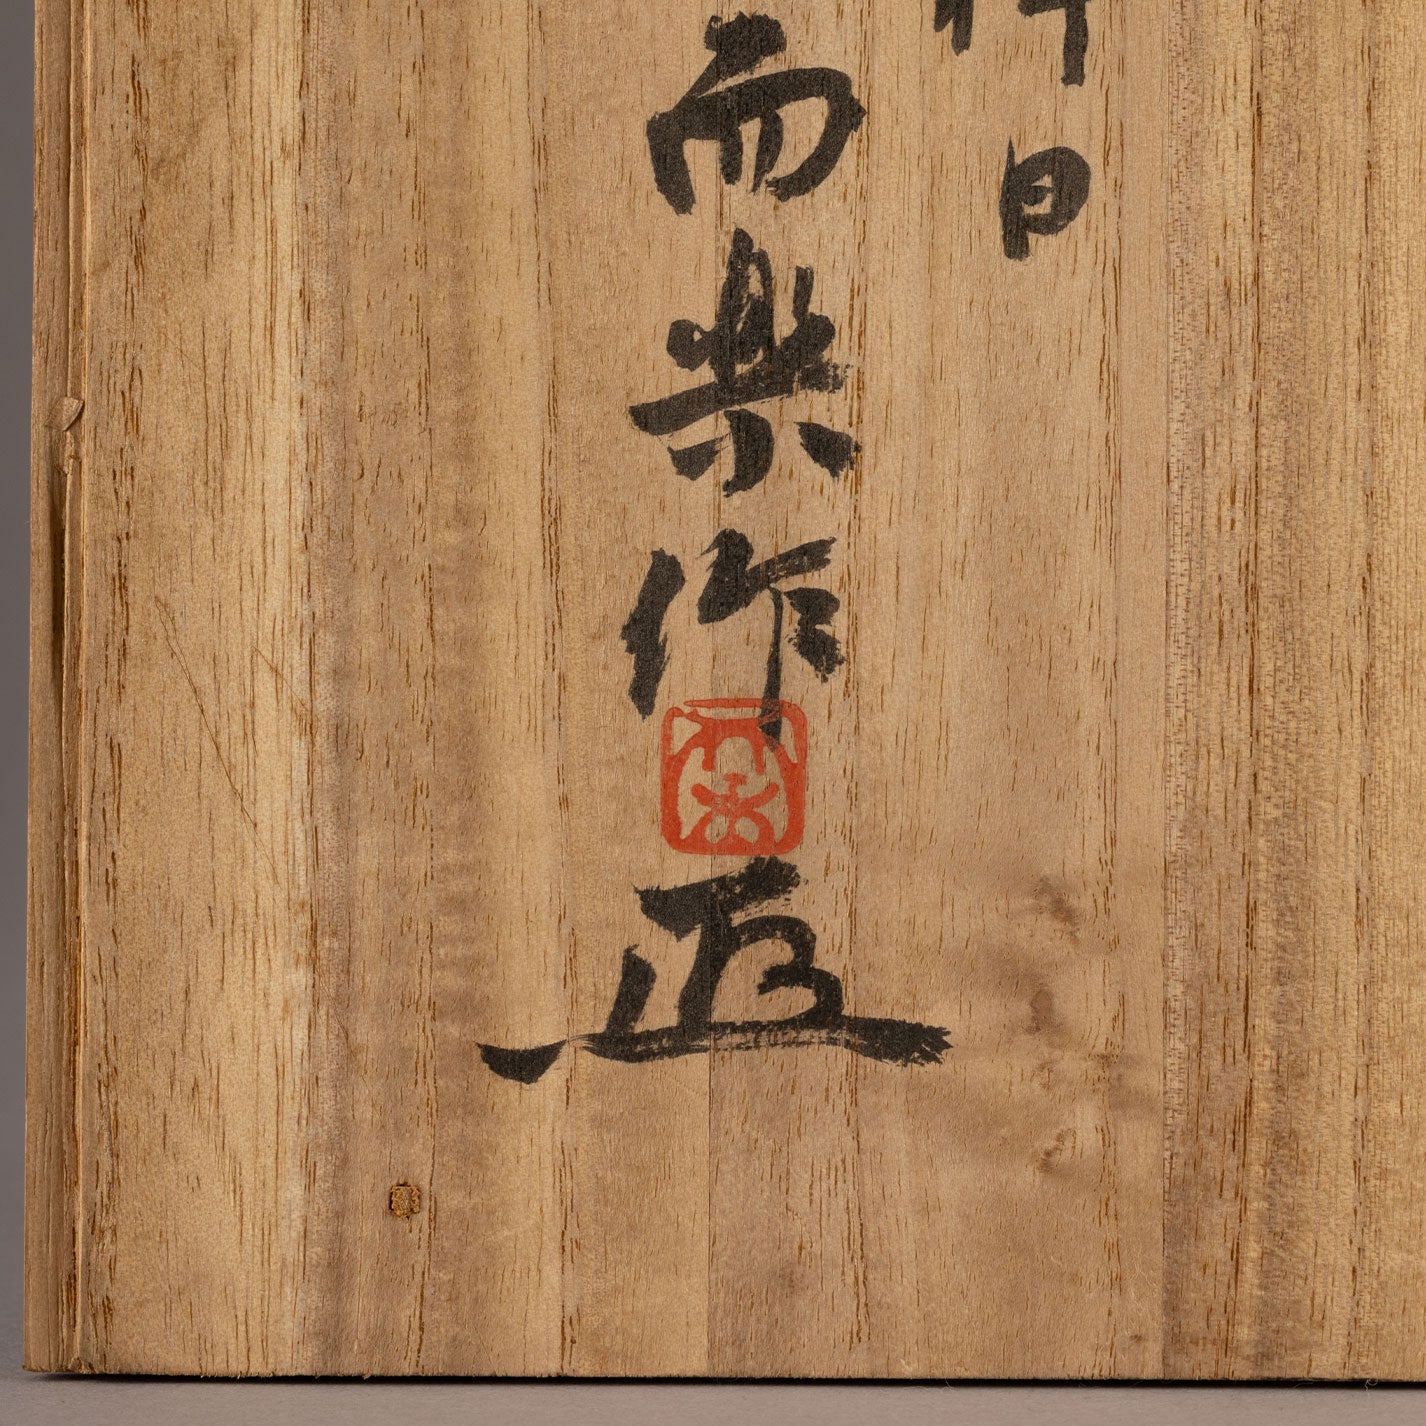 日
而楽作
正